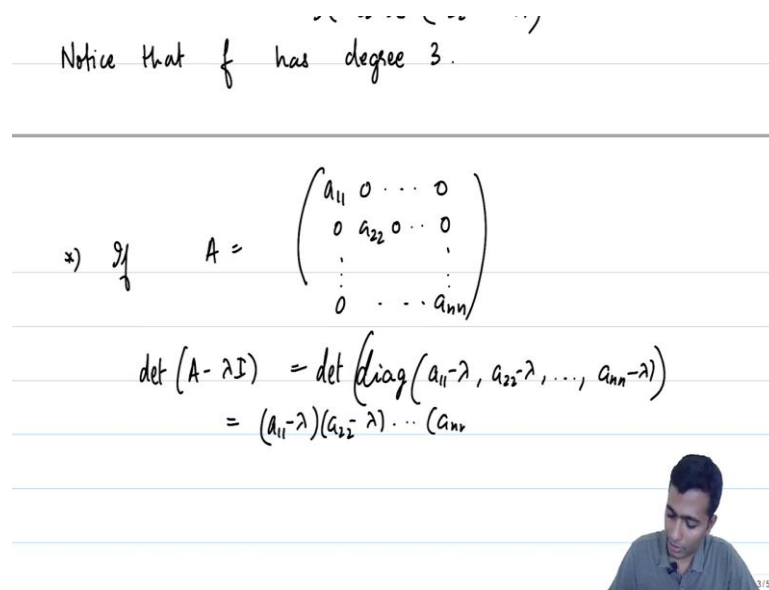 Notice that f has degree 3.
*) If A = ( a₁₁ 0 ··· 0
0 a₂₂ 0 ·· 0
⋮ ⋮
0 · ·· aₙₙ )
det (A - λI) = det (diag (a₁₁-λ, a₂₂-λ, ..., aₙₙ-λ))
= (a₁₁-λ)(a₂₂-λ) ··· (aₙₙ
3/5